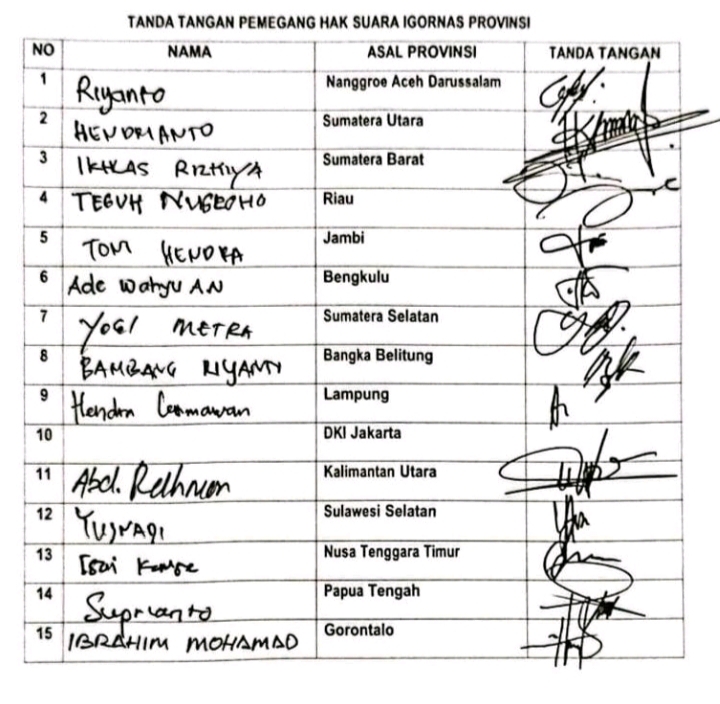 TANDA TANGAN PEMEGANG HAK SUARA IGORNAS PROVINSI
NO NAMA ASAL PROVINSI TANDA TANGAN
1 Riyanto Nanggroe Aceh Darussalam
2 HENDRIANTO Sumatera Utara
3 IKHLAS RIZHIYA Sumatera Barat
4 TEGUH NUGROHO Riau
5 TOM HENDRA Jambi
6 Ade Wahyu AN Bengkulu
7 YOGI METRA Sumatera Selatan
8 BAMBANG RIYANTI Bangka Belitung
9 Hendra Lesmawan Lampung
10 DKI Jakarta
11 Abd. Rahman Kalimantan Utara
12 Sulawesi Selatan
13 Nusa Tenggara Timur
14 Suprianto Papua Tengah
15 IBRAHIM MOHAMAD Gorontalo